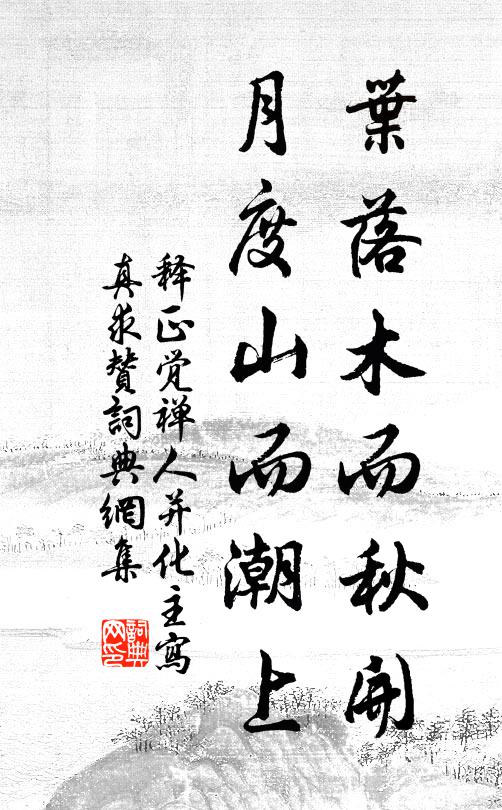 葉落木而秋開
月度山而潮上
释正觉禅人并化主寫
真求贊詞典網集
詞典網印